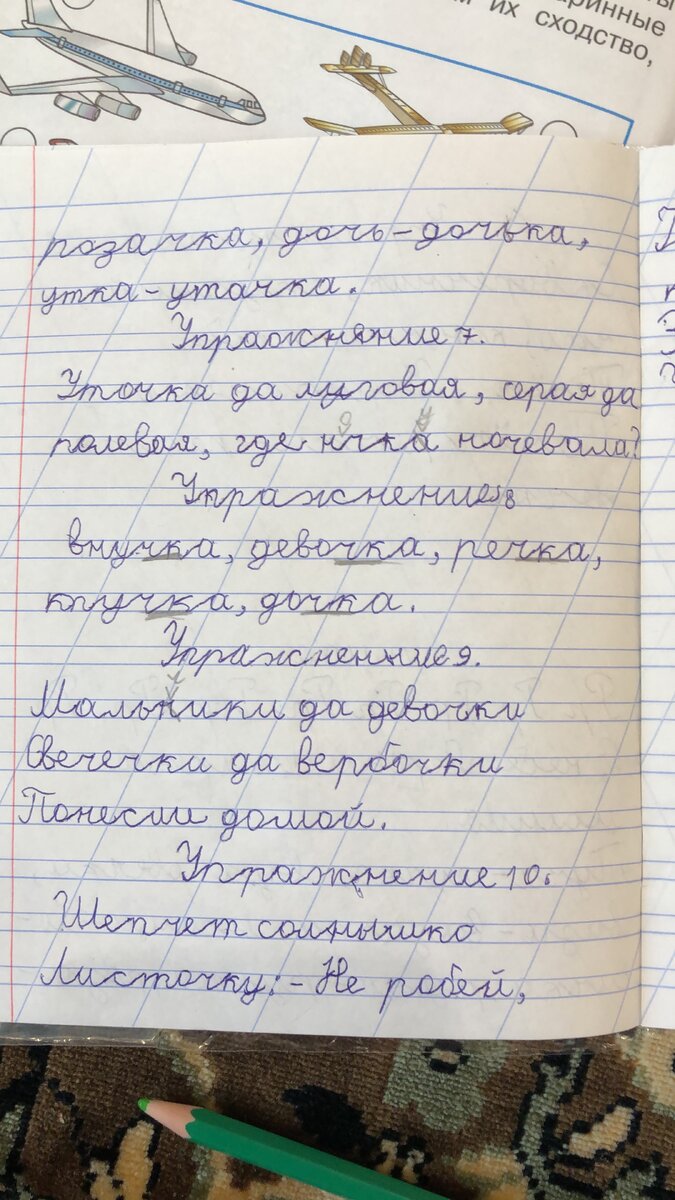 ринные
м их сходство,
розачка, дочь-дочька,
утка-утачка.
Упражняние 7.
Уточка да луговая, серая да
полевая, где нчка ночевала?
Упражнение 8
внучка, девочка, речка,
тучка, дочка.
Упражненние 9.
Мальники да девочки
Свечечки да вербочки
Понесли домой.
Упражнение 10.
Шепчет солнышко
Листочку: - Не робей,